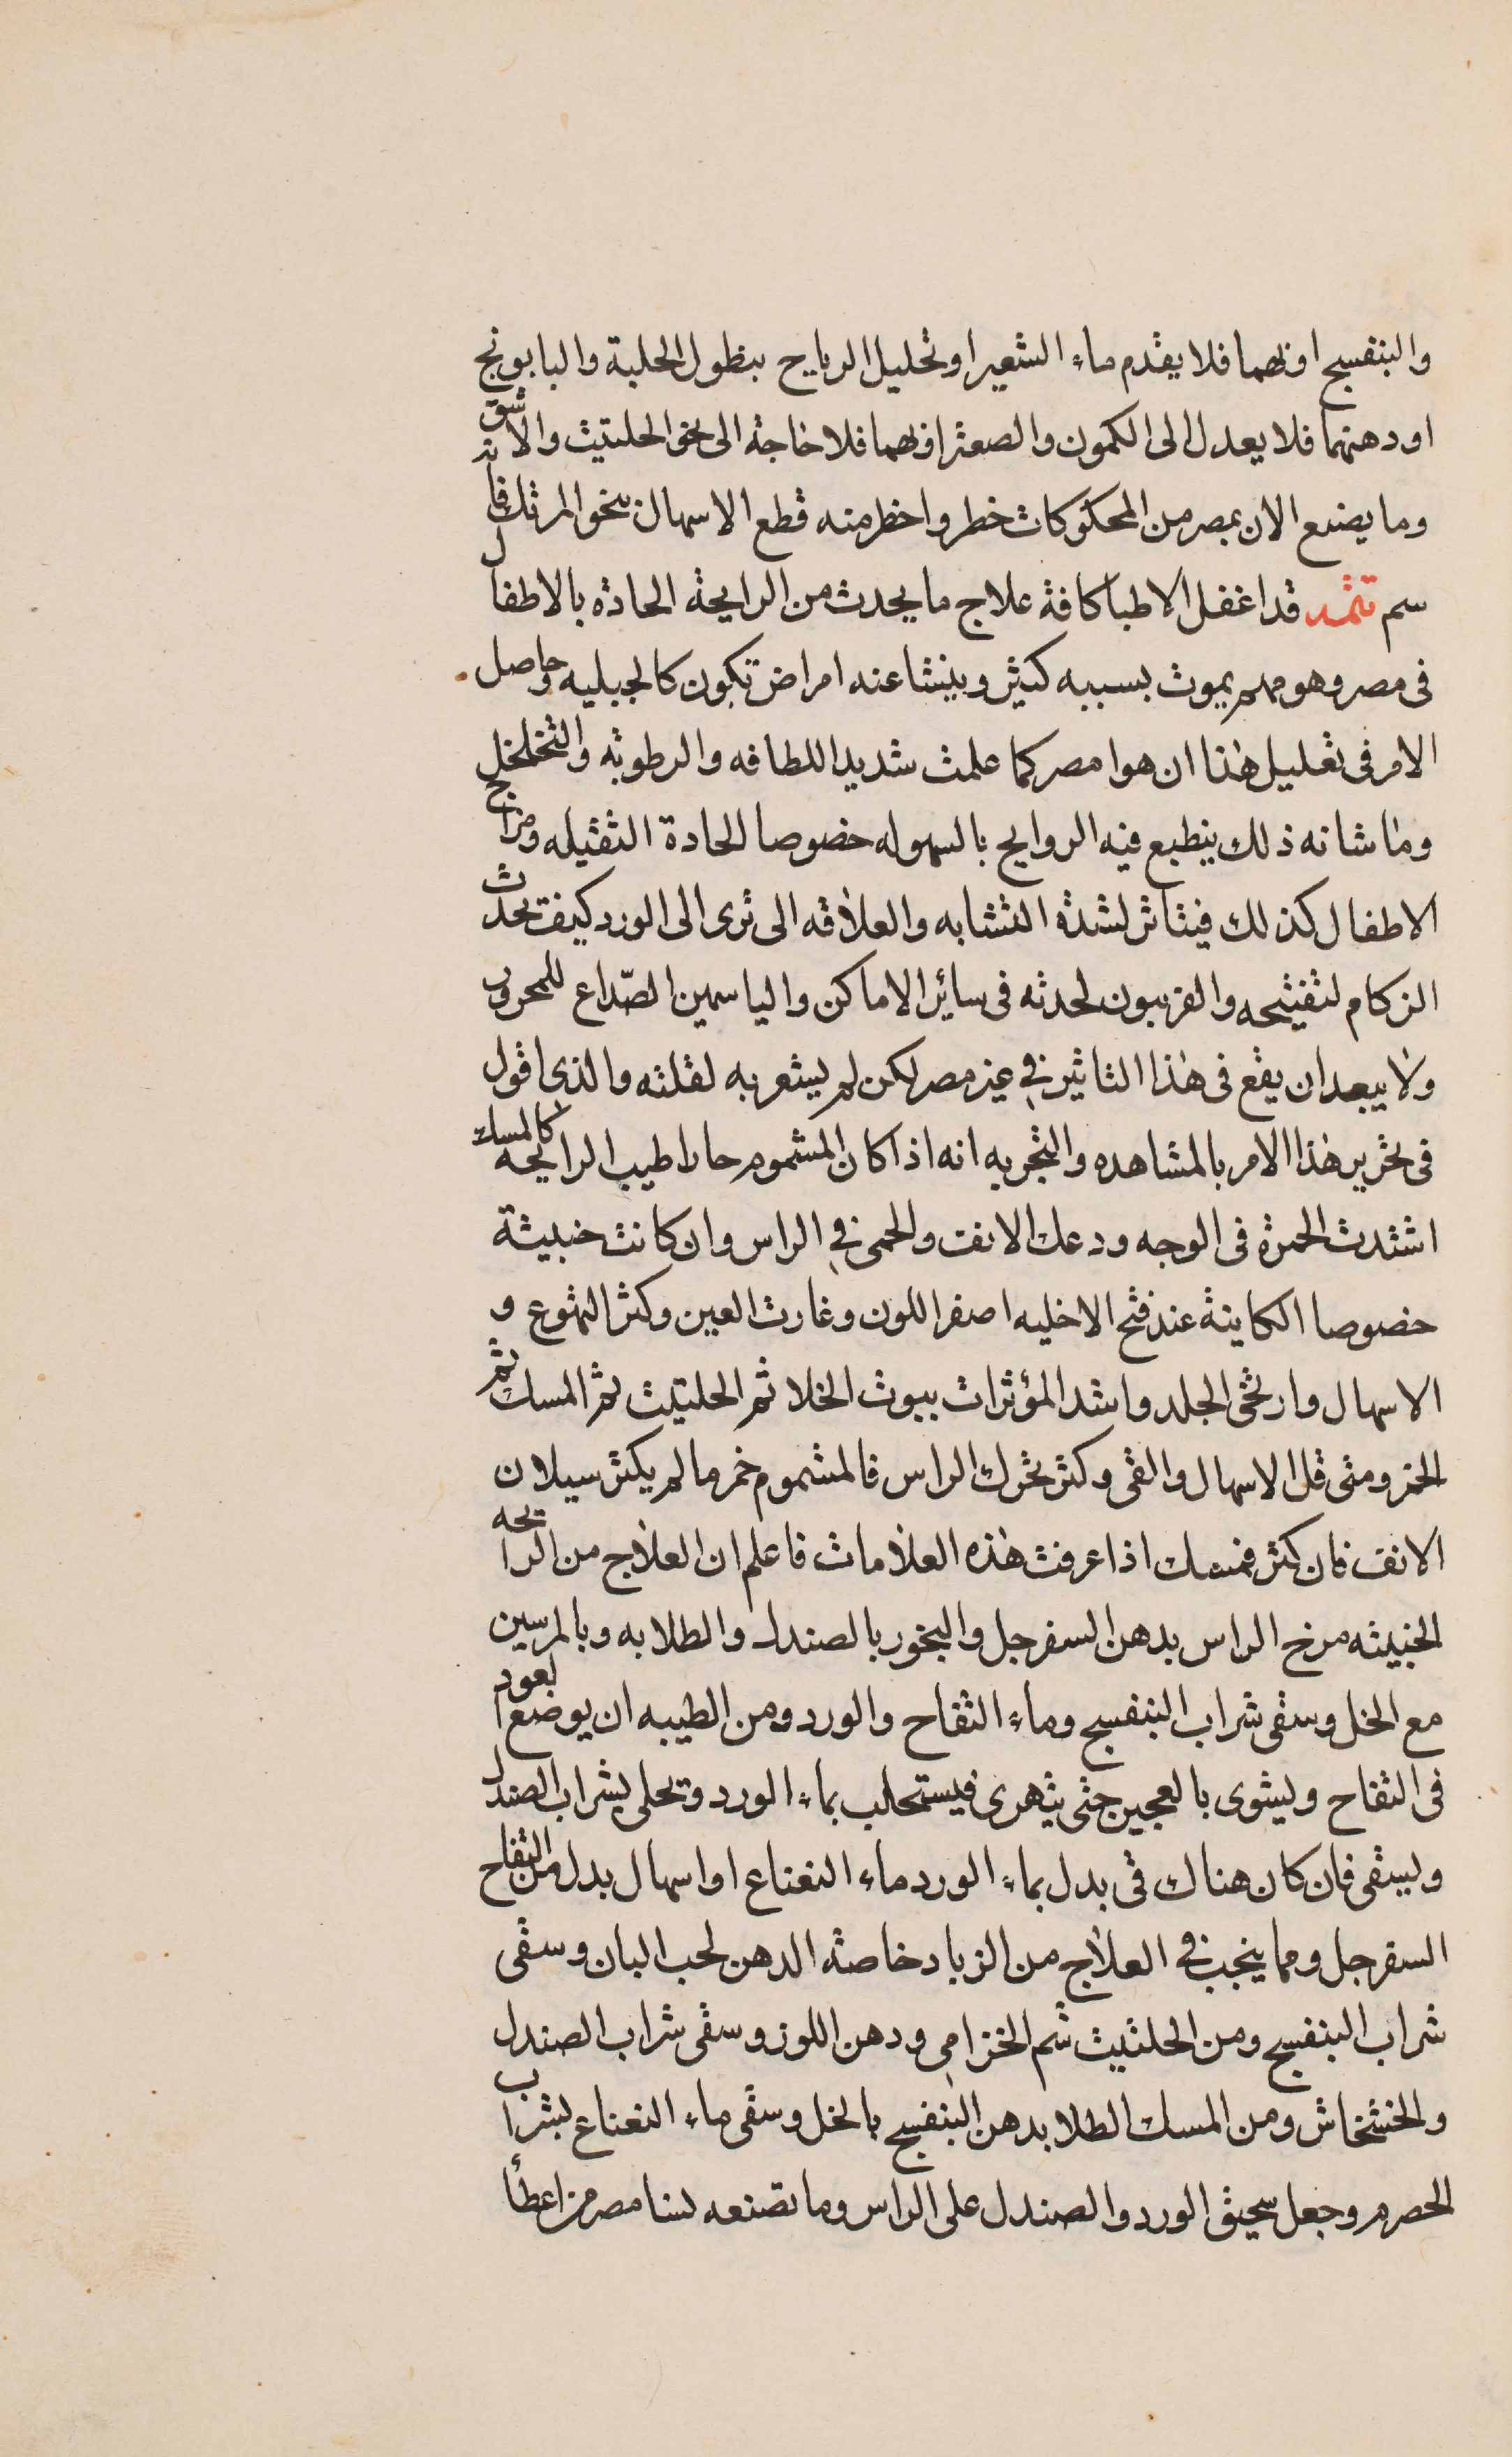 والبنفسج اوبهما فلا يقدم ماء الشعير او تحليل الرياح بنطول الحلبة والبابونج
او دهنهما فلا يعدل الى الكمون والصعتر اوبهما فلا حاجة الى نحو الحلتيت والاشق
وما يصنع الان بمصر من المحكوكات خطر واخطر منه قطع الاسهال بنحو المرتك فانه
سم تتمه قد اغفل الاطبا كافة علاج ما يحدث من الرايحة الحادة بالاطفال
فى مصر وهو مهم يموت بسببه كثير وينشا عنه امراض تكون كالجبليه وحاصل
الامر فى تعليل هذا ان هوا مصر كما علمت شديد اللطافه والرطوبه والتخلخل
وما شانه ذلك ينطبع فيه الروايح بالسهوله خصوصا الحادة الثقيله ومزاج
الاطفال كذلك فيتاثر لشدة التشابه والعلاقه الى ترى الى الورد كيف يحدث
الزكام لتفتيحه والفربيون لحدته فى سائر الاماكن والياسمين الصداع للمحرور
ولا يبعد ان يقع فى هذا التاثير فى غير مصر لكن لم يشعر به لقلته والذى اقول
فى تحرير هذا الامر بالمشاهده والتجربه انه اذا كان المشموم حارا طيب الرايحه كالمسك
اشتدت الحمرة فى الوجه ودعك الانف والحمى فى الراس وان كانت خبيثة
خصوصا الكاينة عند فتح الاخليه اصفر اللون وغارت العين وكثر التهوع و
الاسهال وارتخى الجلد واشد المؤثرات بيوت الخلا ثم الحلتيت ثم المسك ثم
الخمر ومتى قل الاسهال والقى وكثر تحرك الراس فالمشموم خمر ما لم يكثر سيلان
الانف فان كثر فمسك اذا عرفت هذه العلامات فاعلم ان العلاج من الرايحه
الخبيثه مرخ الراس بدهن السفرجل والبخور بالصندل والطلا به وبالمرسين
مع الخل وسقى شراب البنفسج وماء التفاح والورد ومن الطيبه ان يوضع العود
فى التفاح ويشوى بالعجين حتى يتهرى فيستحلب بماء الورد وتحلى بشراب الصندل
ويسقى فان كان هناك قى بدل بماء الورد ماء النعناع او اسهال بدل من التفاح
السفرجل ومما ينجب فى العلاج من الزباد خاصة الدهن لحب البان وسقى
شراب البنفسج ومن الحلتيت شم الخزامى ودهن اللوز وسقى شراب الصندل
والخشخاش ومن المسك الطلا بدهن البنفسج بالخل وسقى ماء النعناع بشراب
الحصرم وجعل سحيق الورد والصندل على الراس وما تصنعه نسا مصر من اعطا